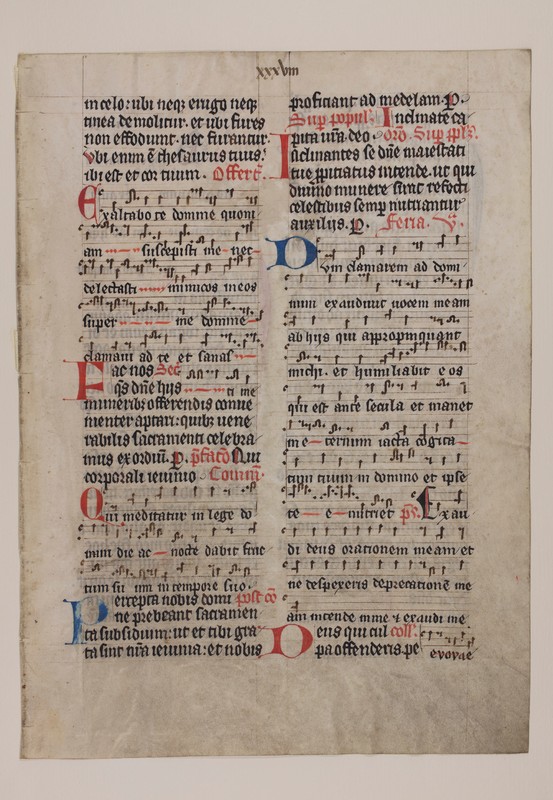 xxxviii
in celo: ubi neq; erugo neq;
tinea demolitur. et ubi fures
non effodiunt. nec furantur.
Vbi enim ē thesaurus tuus:
ibi est et cor tuum. Offert'.
Exaltabo te domine quoni
am suscepisti me nec
delectasti inimicos meos
super me domine
clamaui ad te et sanas
Fac nos Sec'
q̄s dn̄e hijs ti me
munerib; offerendis conue
nienter aptari: quib; uene
rabilis sacramenti celebra
mus exordiū. P. p̄facō Qui
corporali ieiunio Commū.
Qui meditatur in lege do
mini die ac nocte dabit fruc
tum su um in tempore suo.
Percepta nobis domi post cō
ne prebeant sacramen
ta subsidium: ut et tibi gra
ta sint nr̄a ieiunia: et nobis
proficiant ad medelam. P.
Sup̄ popul' Inclinate ca
pita ur̄a deo. Orō. Sup̄ ppl'm.
Inclinantes se dn̄e maiestati
tue ꝓpitiatus intende. ut qui
diuino munere sunt refecti
celestibus semp̄ nutriantur
auxilijs. P. Feria. V.
Dum clamarem ad domi
num exaudiuit uocem meam
ab hijs qui appropinquant
michi. et humiliabit eos
qui est ante secula et manet
in e ternum iacta cogita
tum tuum in domino et ipse
te e nutriet ps. Exau
di deus orationem meam et
ne despexeris deprecationē me
am intende mihi et exaudi me
Deus qui cul coll'.
pa offenderis pe euouae